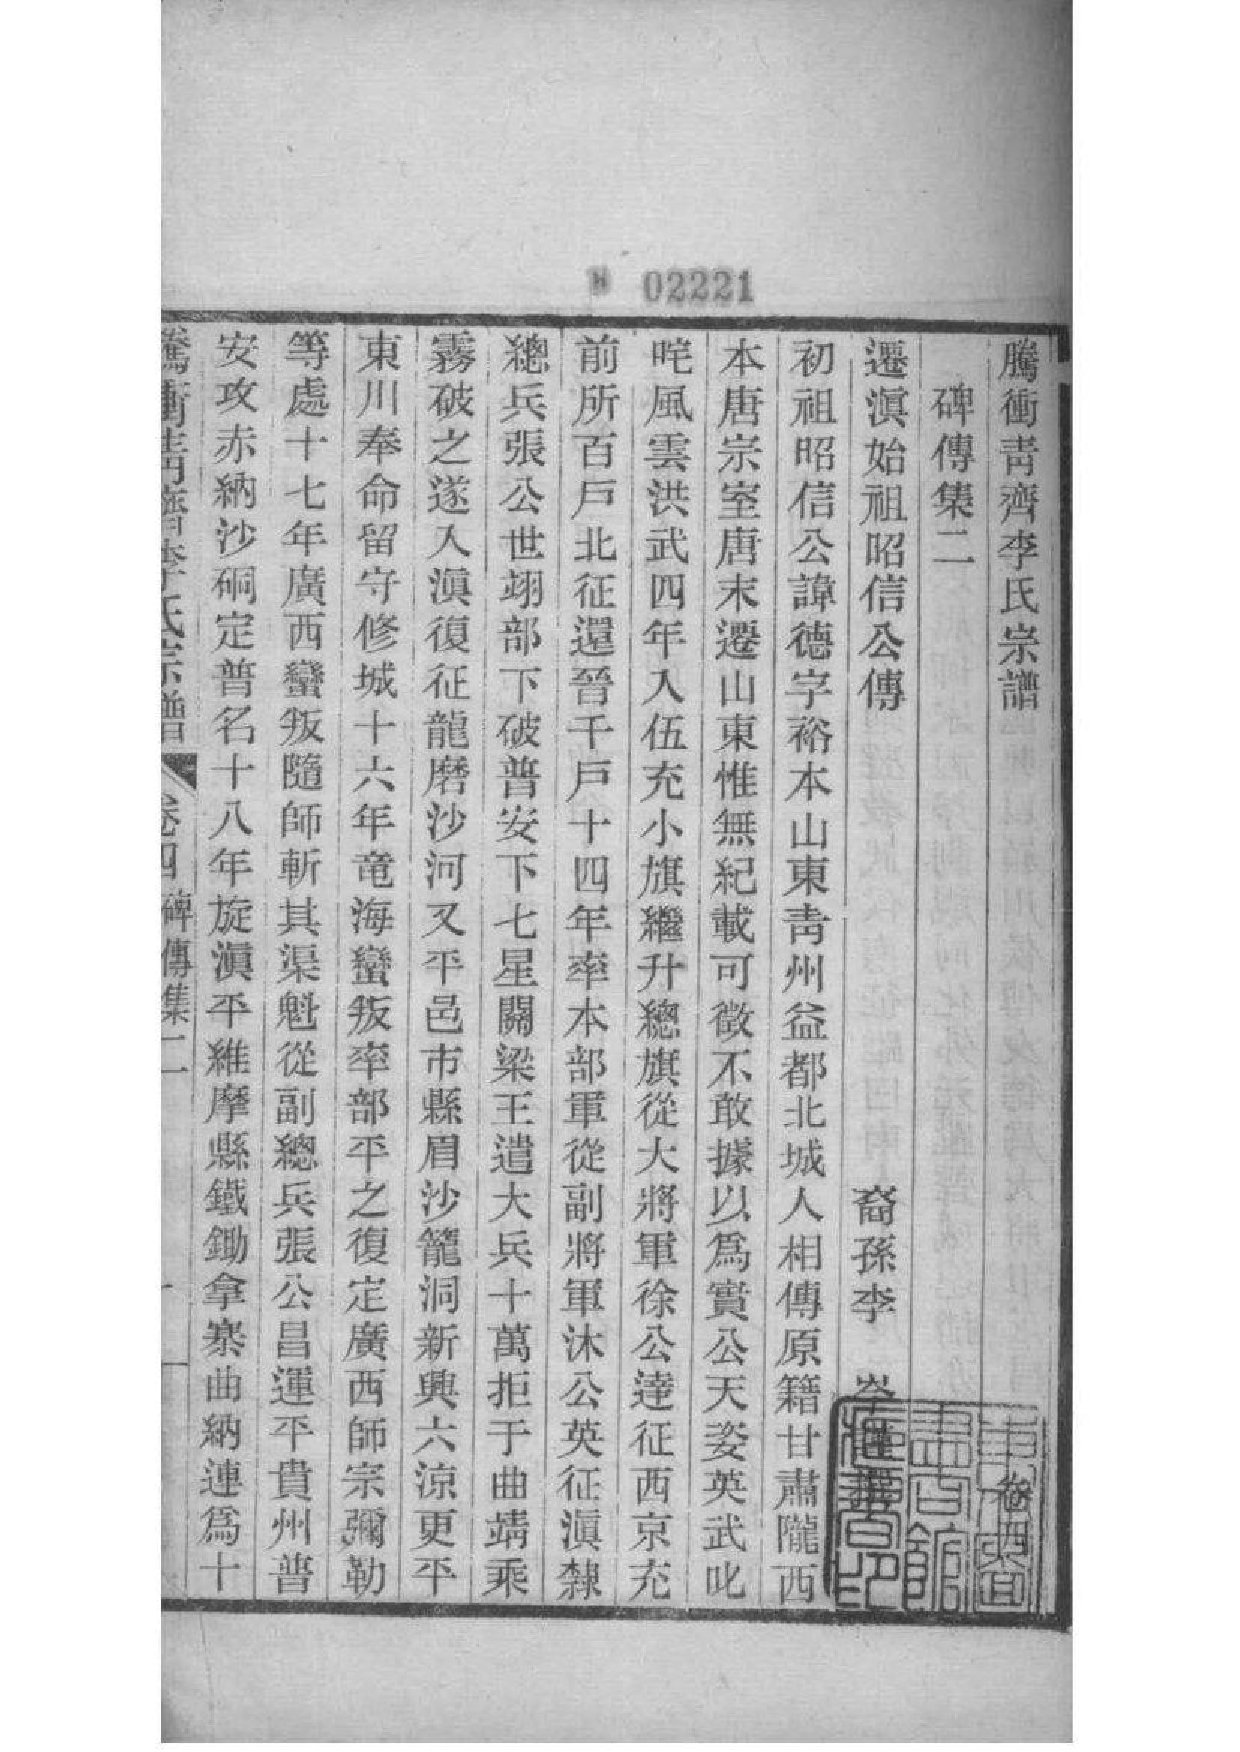 02221
騰衝靑齊李氏宗譜 卷四
碑傳集二
遷滇始祖昭信公傳 裔孫李
初祖昭信公諱德字裕本山東靑州益都北城人相傳原籍甘肅隴西
本唐宗室唐末遷山東惟無紀載可徵不敢據以爲實公天姿英武叱
咤風雲洪武四年入伍充小旗繼升總旗從大將軍徐公達征西京充
前所百戶北征還晉千戶十四年率本部軍從副將軍沐公英征滇隸
總兵張公世翊部下破普安下七星關梁王遣大兵十萬拒于曲靖乘
霧破之遂入滇復征龍磨沙河又平邑市縣眉沙籠洞新興六涼更平
東川奉命留守修城十六年竜海蠻叛率部平之復定廣西師宗彌勒
等處十七年廣西蠻叛隨師斬其渠魁從副總兵張公昌運平貴州普
安攻赤納沙硐定普名十八年旋滇平維摩縣鐵鋤拿寨曲納連爲十
騰衝靑齊李氏宗譜 卷四碑傳集二